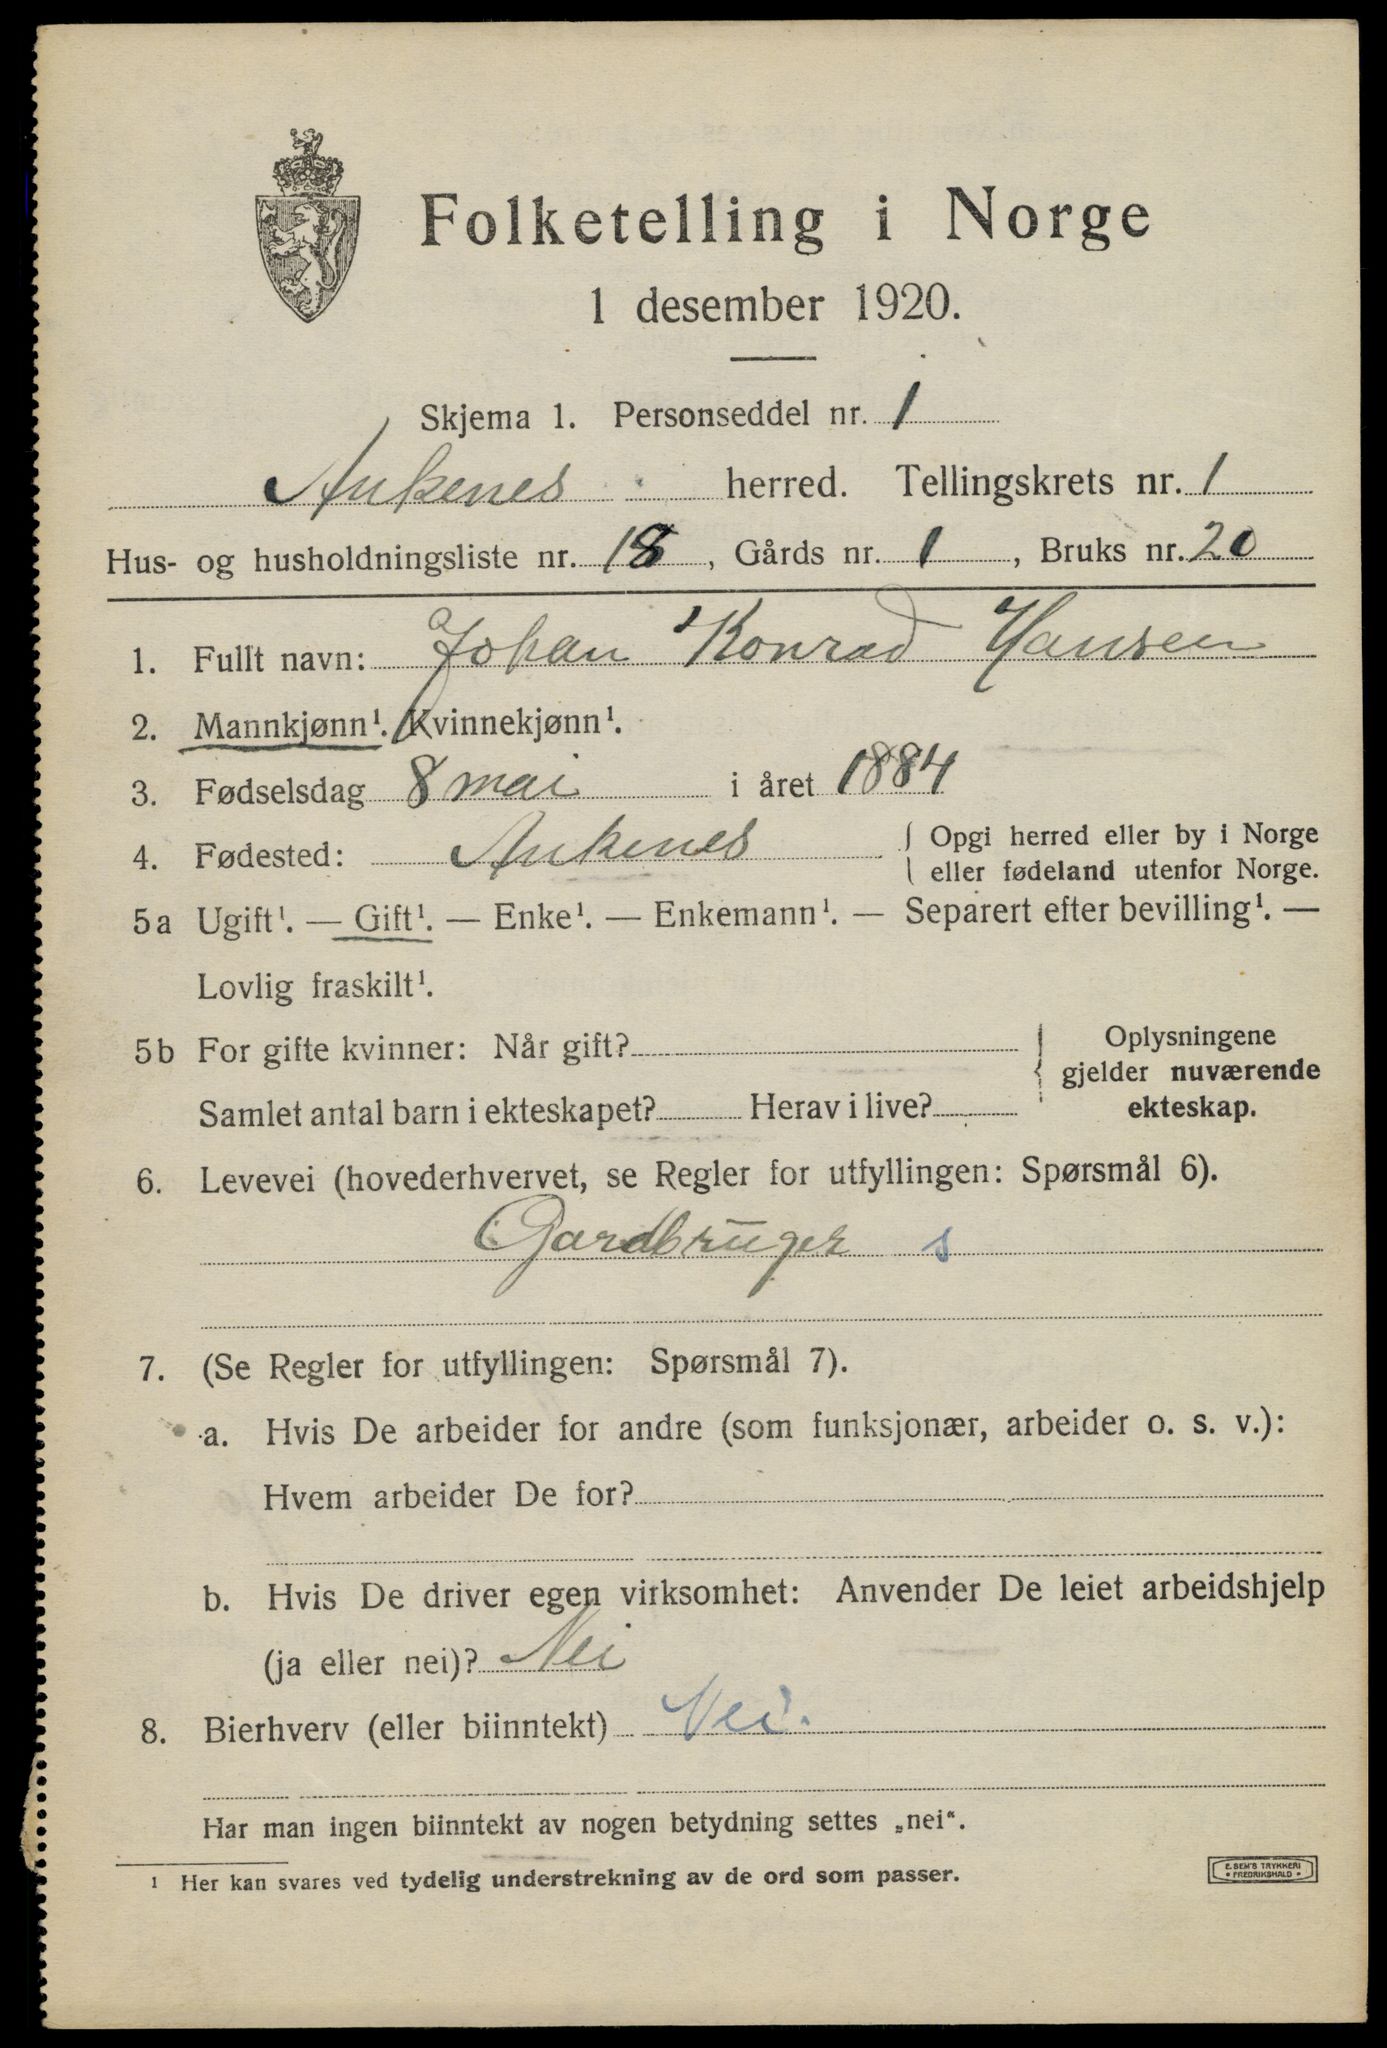 Folketelling i Norge
1 desember 1920.
Skjema 1. Personseddel nr. 1
Ankenes herred. Tellingskrets nr. 1
Hus- og husholdningsliste nr. 18, Gårds nr. 1, Bruks nr. 20
1. Fullt navn: Johan Konrad Hansen
2. Mannkjønn¹. Kvinnekjønn¹.
3. Fødselsdag 8 mai i året 1884
4. Fødested: Ankenes { Opgi herred eller by i Norge
eller fødeland utenfor Norge.
5a Ugift¹. — Gift¹. — Enke¹. — Enkemann¹. — Separert efter bevilling¹. —
Lovlig fraskilt¹.
5b For gifte kvinner: Når gift?
Samlet antal barn i ekteskapet? Herav i live?
Oplysningene
gjelder nuværende
ekteskap.
6. Levevei (hovederhvervet, se Regler for utfyllingen: Spørsmål 6).
Gardbruger s
7. (Se Regler for utfyllingen: Spørsmål 7).
a. Hvis De arbeider for andre (som funksjonær, arbeider o. s. v.):
Hvem arbeider De for?
b. Hvis De driver egen virksomhet: Anvender De leiet arbeidshjelp
(ja eller nei)? Nei
8. Bierhverv (eller biinntekt) Nei.
Har man ingen biinntekt av nogen betydning settes „nei“.
¹ Her kan svares ved tydelig understrekning av de ord som passer.
E. SEM'S TRYKKERI
• FREDRIKSHALD •